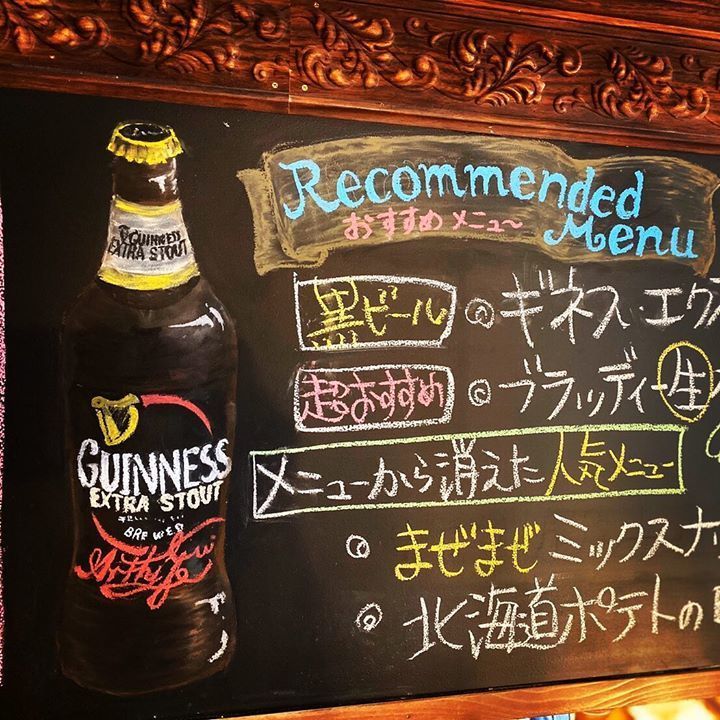 GUINNESS
EXTRA STOUT
GUINNESS
EXTRA STOUT
BREWED
Recommended
Menu
おすすめメニュー
黒ビール ◎ ギネス・エク
超おすすめ ◎ ブラッディー生
メニューから消えた人気メニュー
◎ まぜまぜミックスナ
◎ 北海道ポテトの